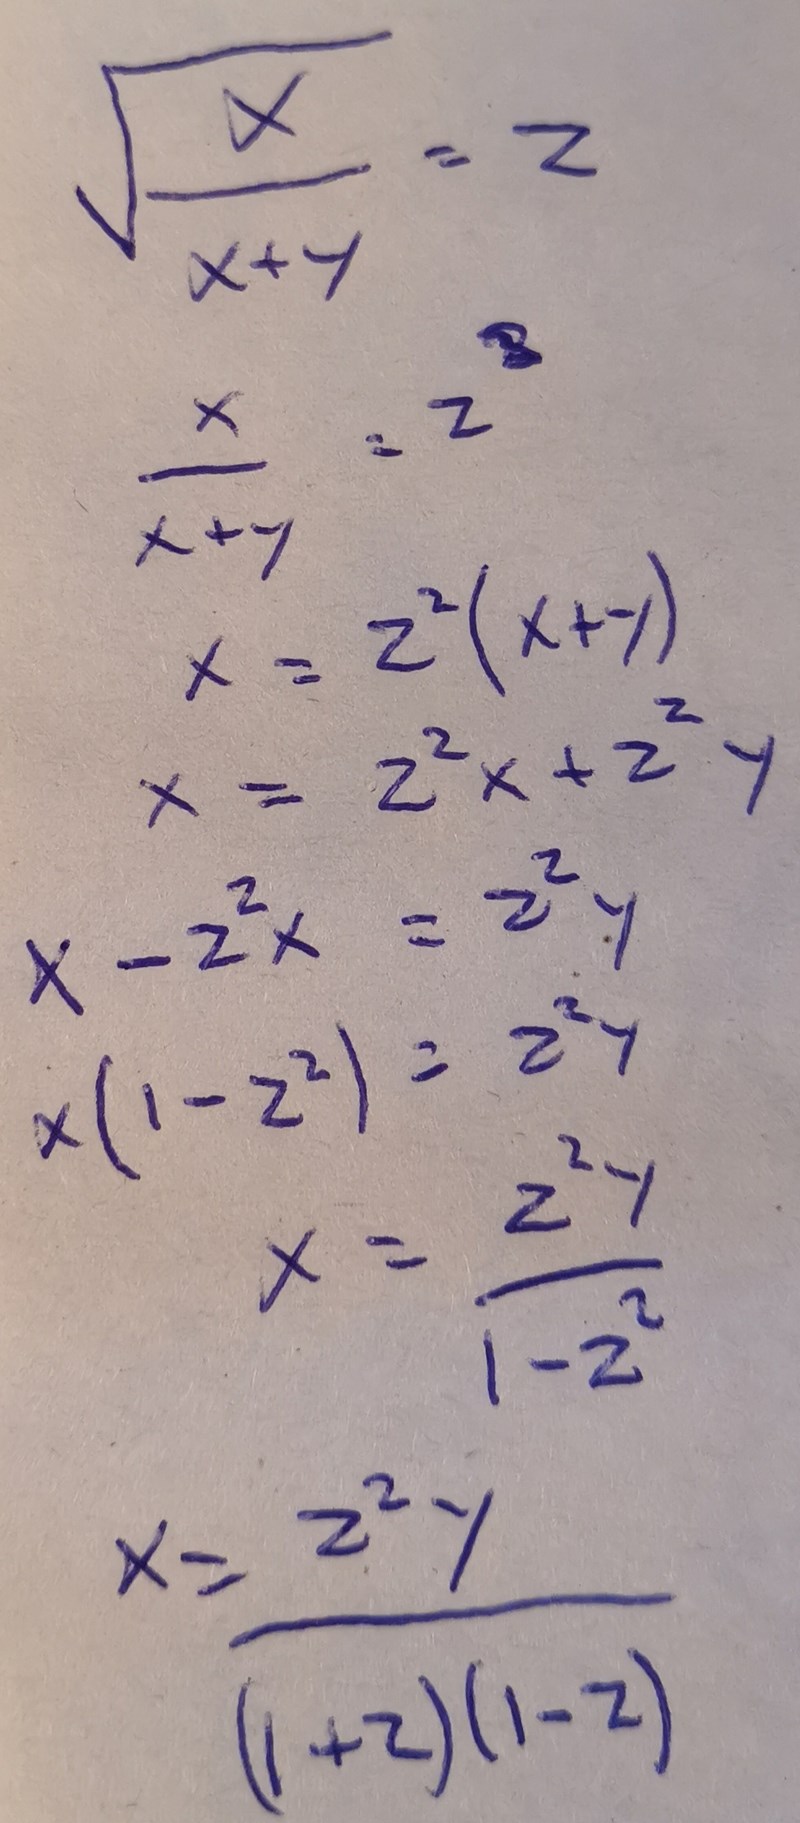 √(x/(x+y)) = z
x/(x+y) = z
x = z²(x+y)
x = z²x + z²y
x - z²x = z²y
x(1-z²) = z²y
x = z²y/(1-z²)
x = z²y/((1+z)(1-z))